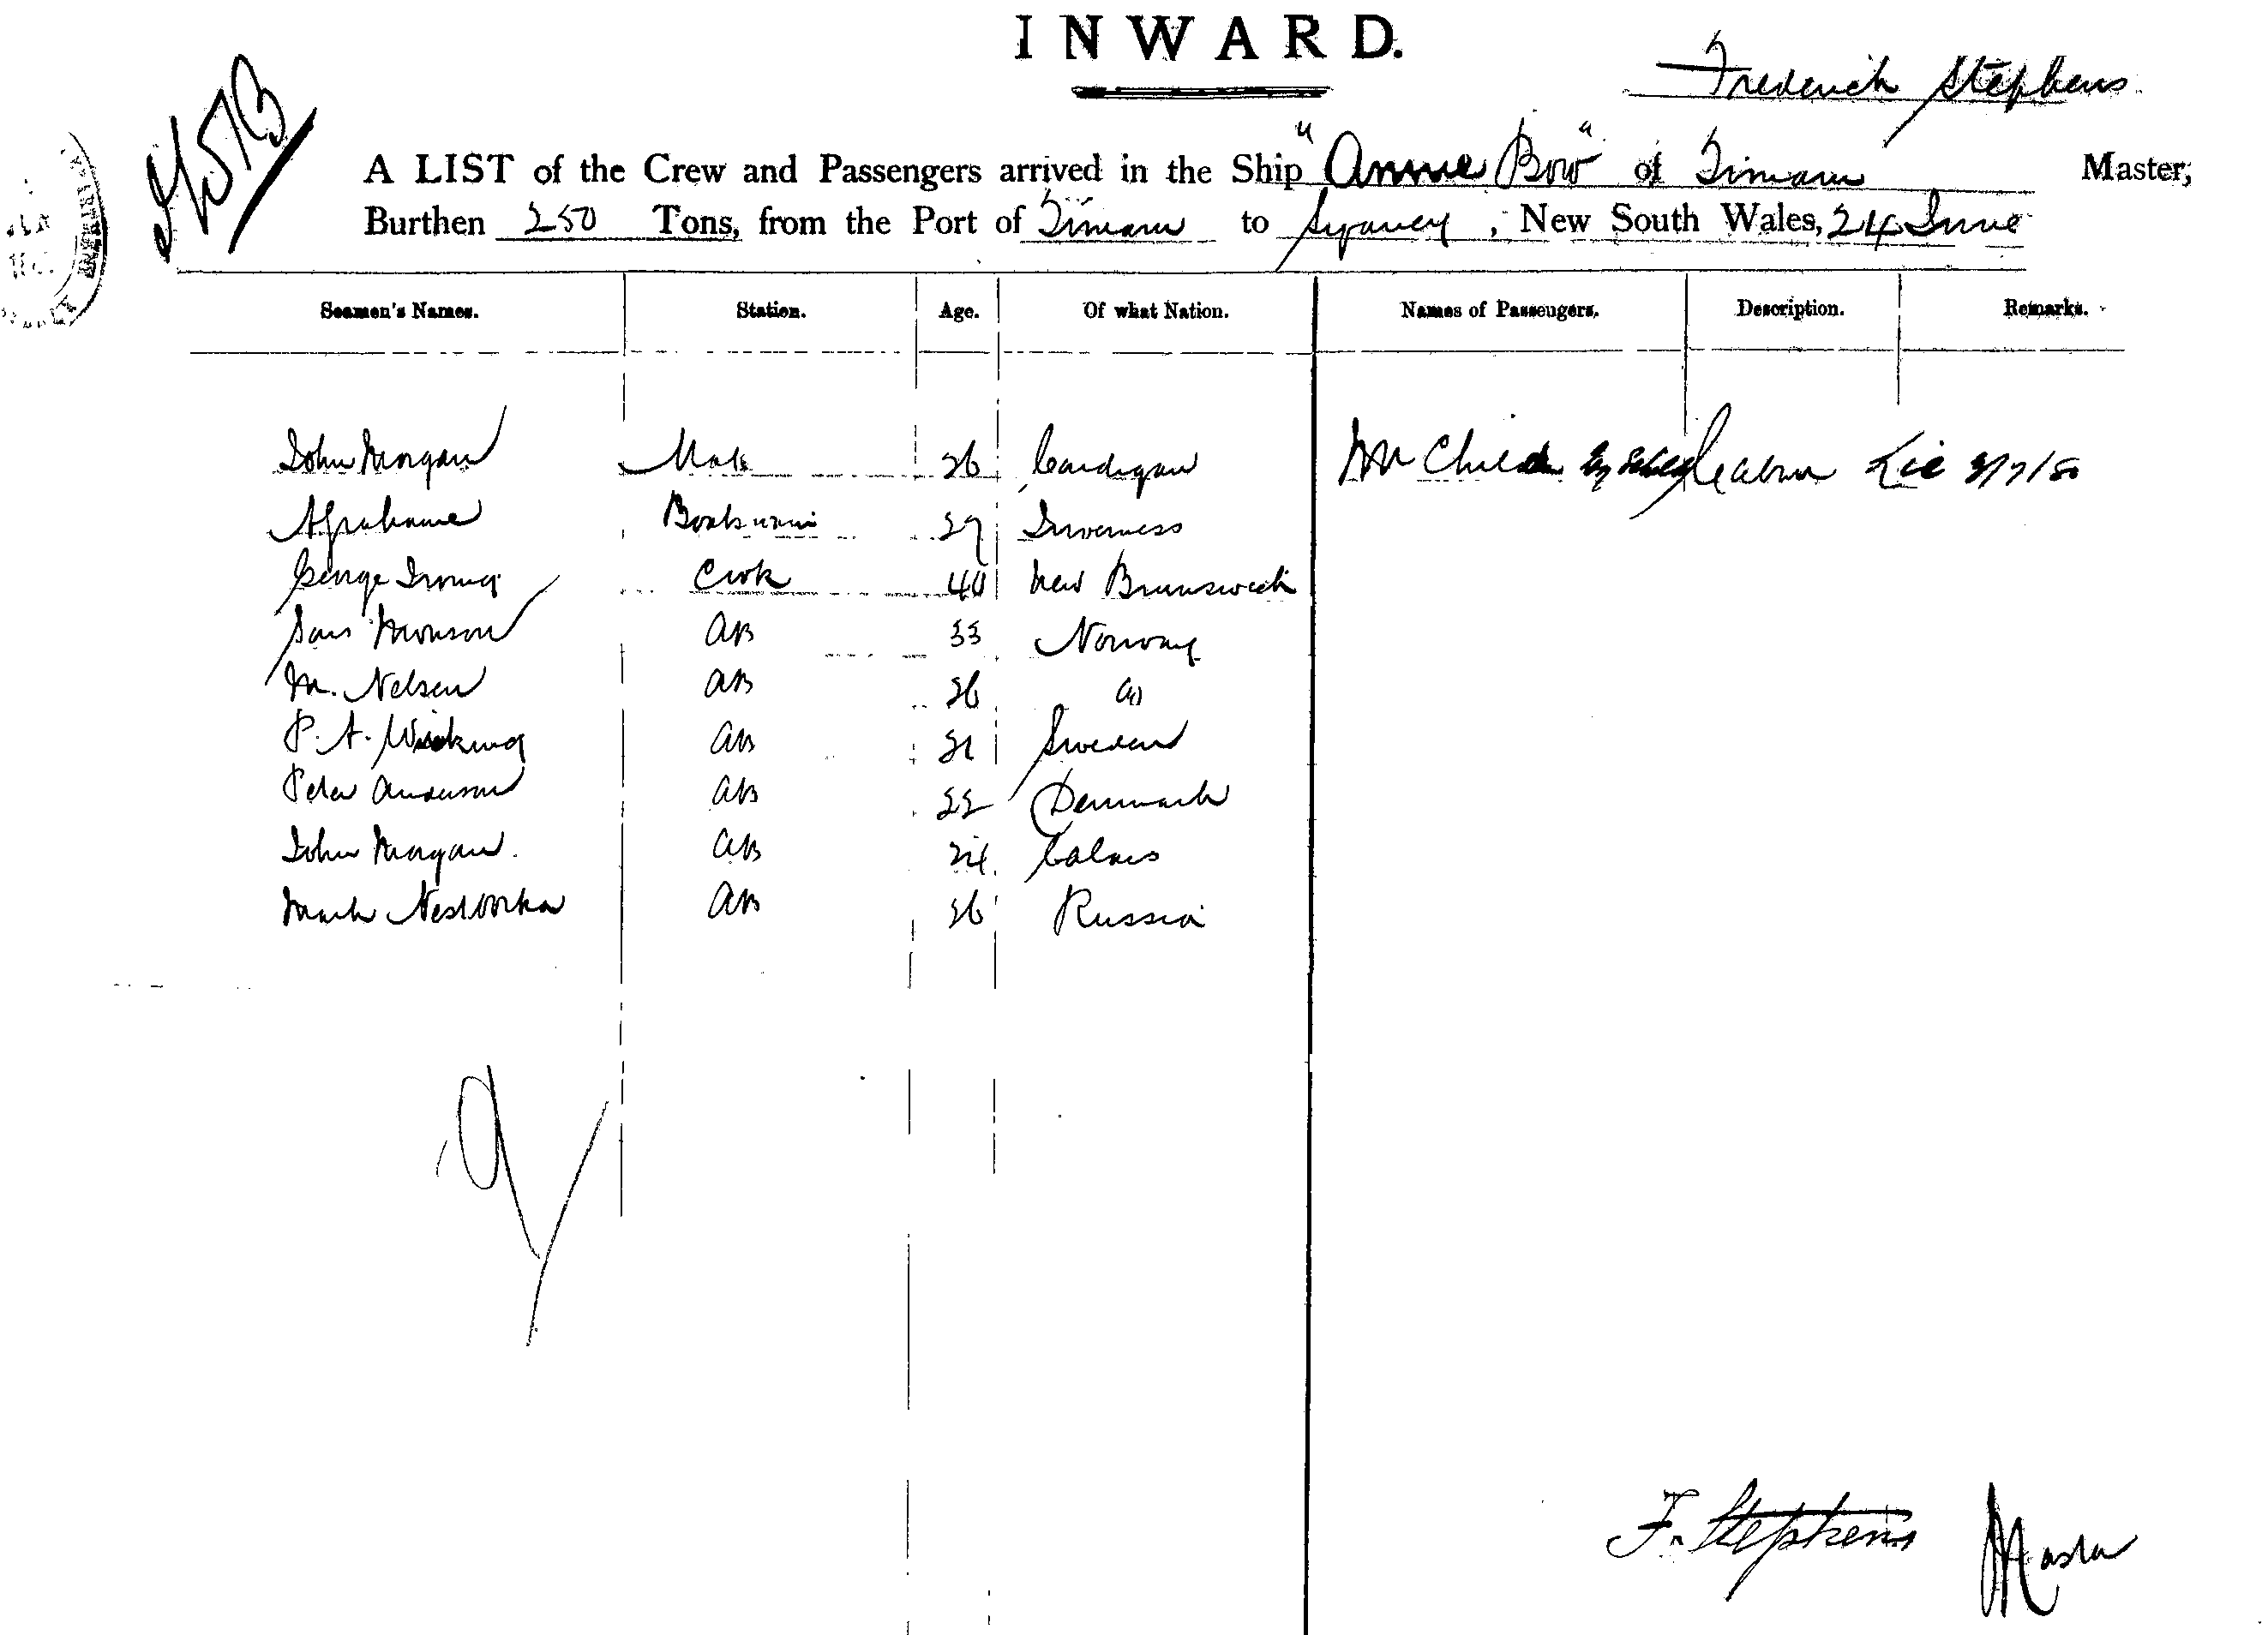 INWARD.
Frederick Stephens
A LIST of the Crew and Passengers arrived in the Ship "Annie Bow" of Timaru Master,
Burthen 250 Tons, from the Port of Timaru to Sydney, New South Wales, 24 June
Seamen's Names. Station. Age. Of what Nation. Names of Passengers. Description. Remarks.
John Morgan Mate 26 Cardigan Mr Child Cabin
A Grahame Boatswain 29 Inverness
George Irving Cook 40 New Brunswick
Monson AB 33 Norway
M. Nelsen AB 26 do
P. A. AB 21 Sweden
Peter Anderson AB 22 Denmark
John Morgan. AB 24 Calais
Mark AB 26 Russia
F. Stephens Master